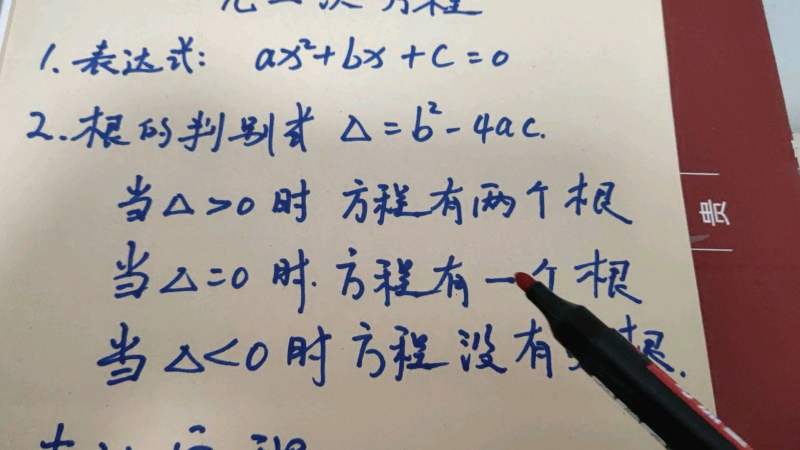 元二次方程
1. 表达式: ax²+bx+c=0
2. 根的判别式 Δ=b²-4ac.
当Δ>0时 方程有两个根
当Δ=0时. 方程有一个根
当Δ<0时方程没有 根.
贵